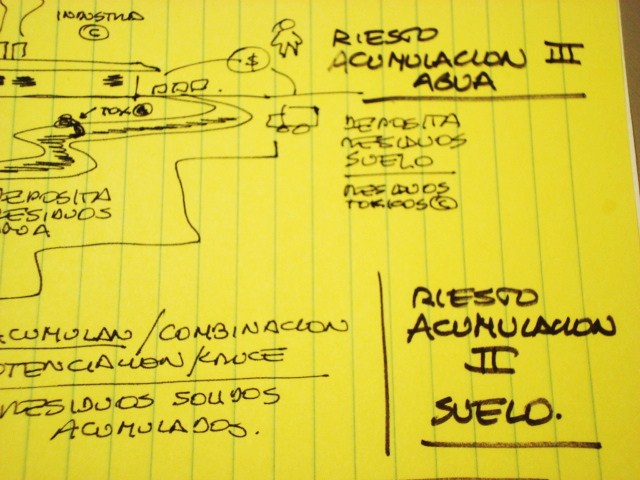 INDUSTRIA
C
$
RIESGO
ACUMULACION III
AGUA
DEPOSITA
RESIDUOS
SUELO
RESIDUOS
TOXICOS C
DEPOSITA
RESIDUOS
AGUA
ACUMULAN / COMBINACION
POTENCIACION / CRUCE
RESIDUOS SOLIDOS
ACUMULADOS.
RIESGO
ACUMULACION
II
SUELO.